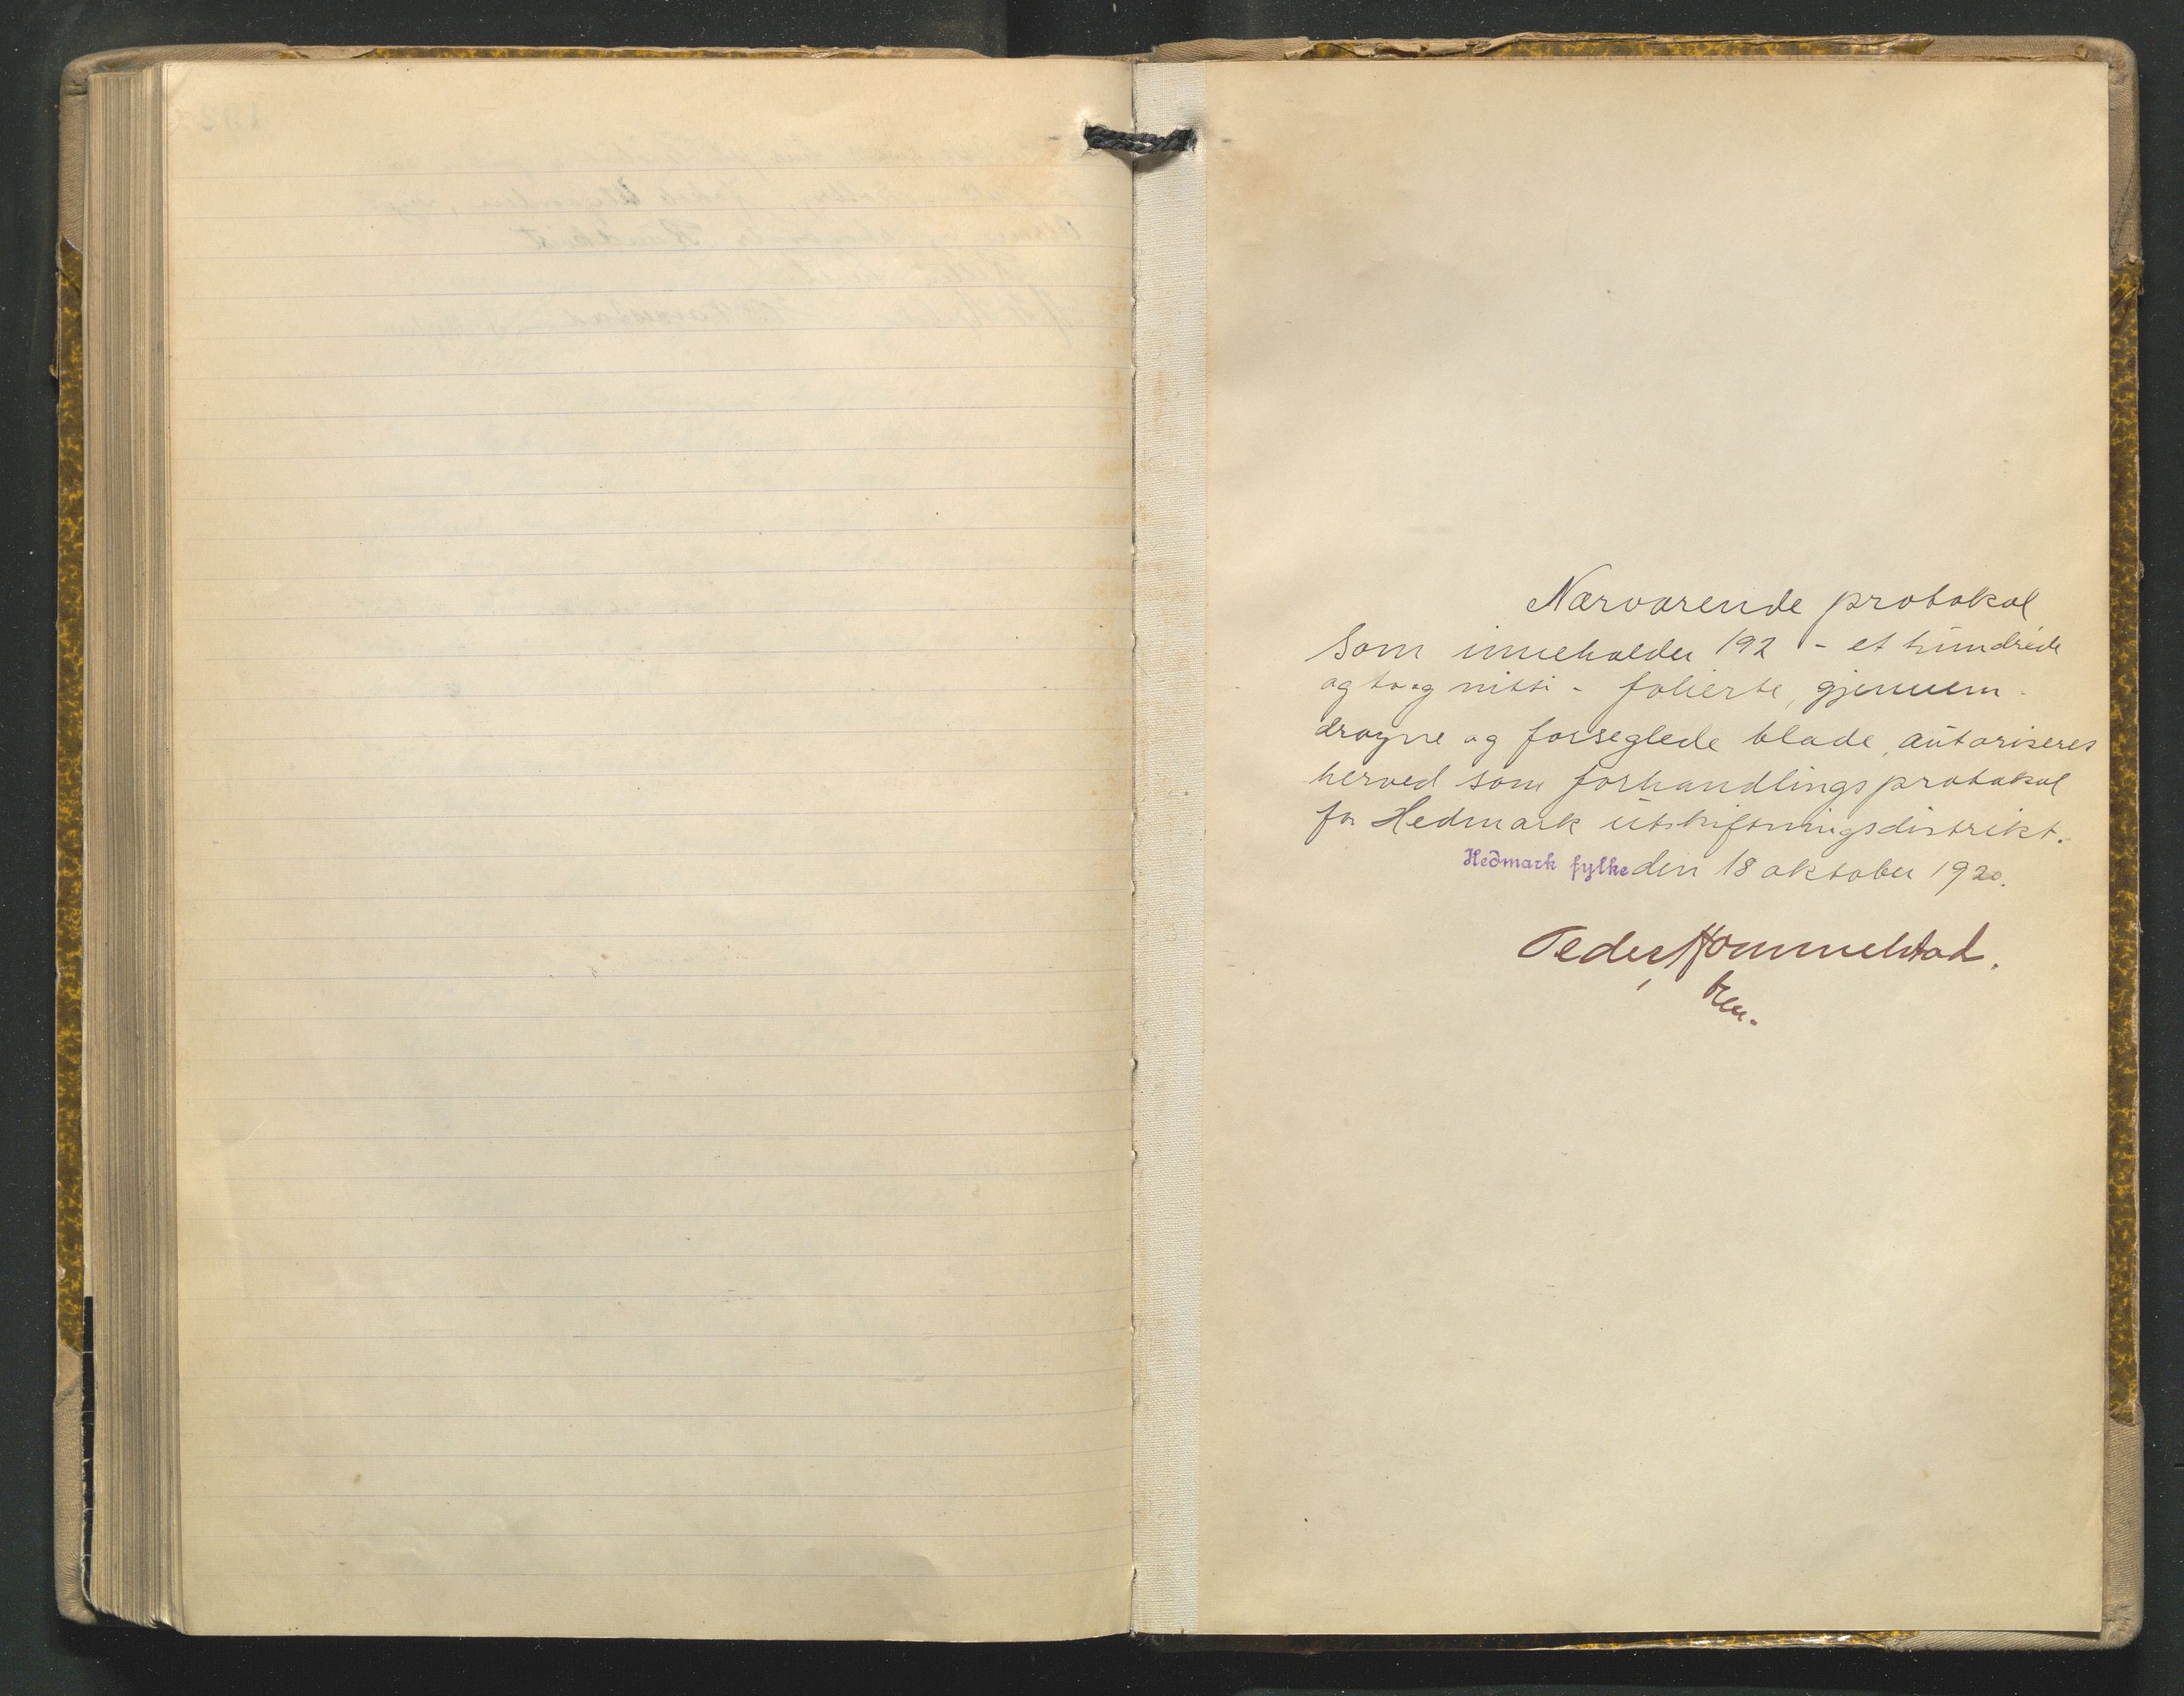 Nærværende protokol
som inneholder 192 - et hundrede
og to og nitti - folierte, gjennem-
dragne og forseglede blade, autoriseres
herved som forhandlingsprotokol
for Hedmark utskiftningsdistrikt.
Hedmark fylke den 18 oktober 1920.
Peder Hommelstad.